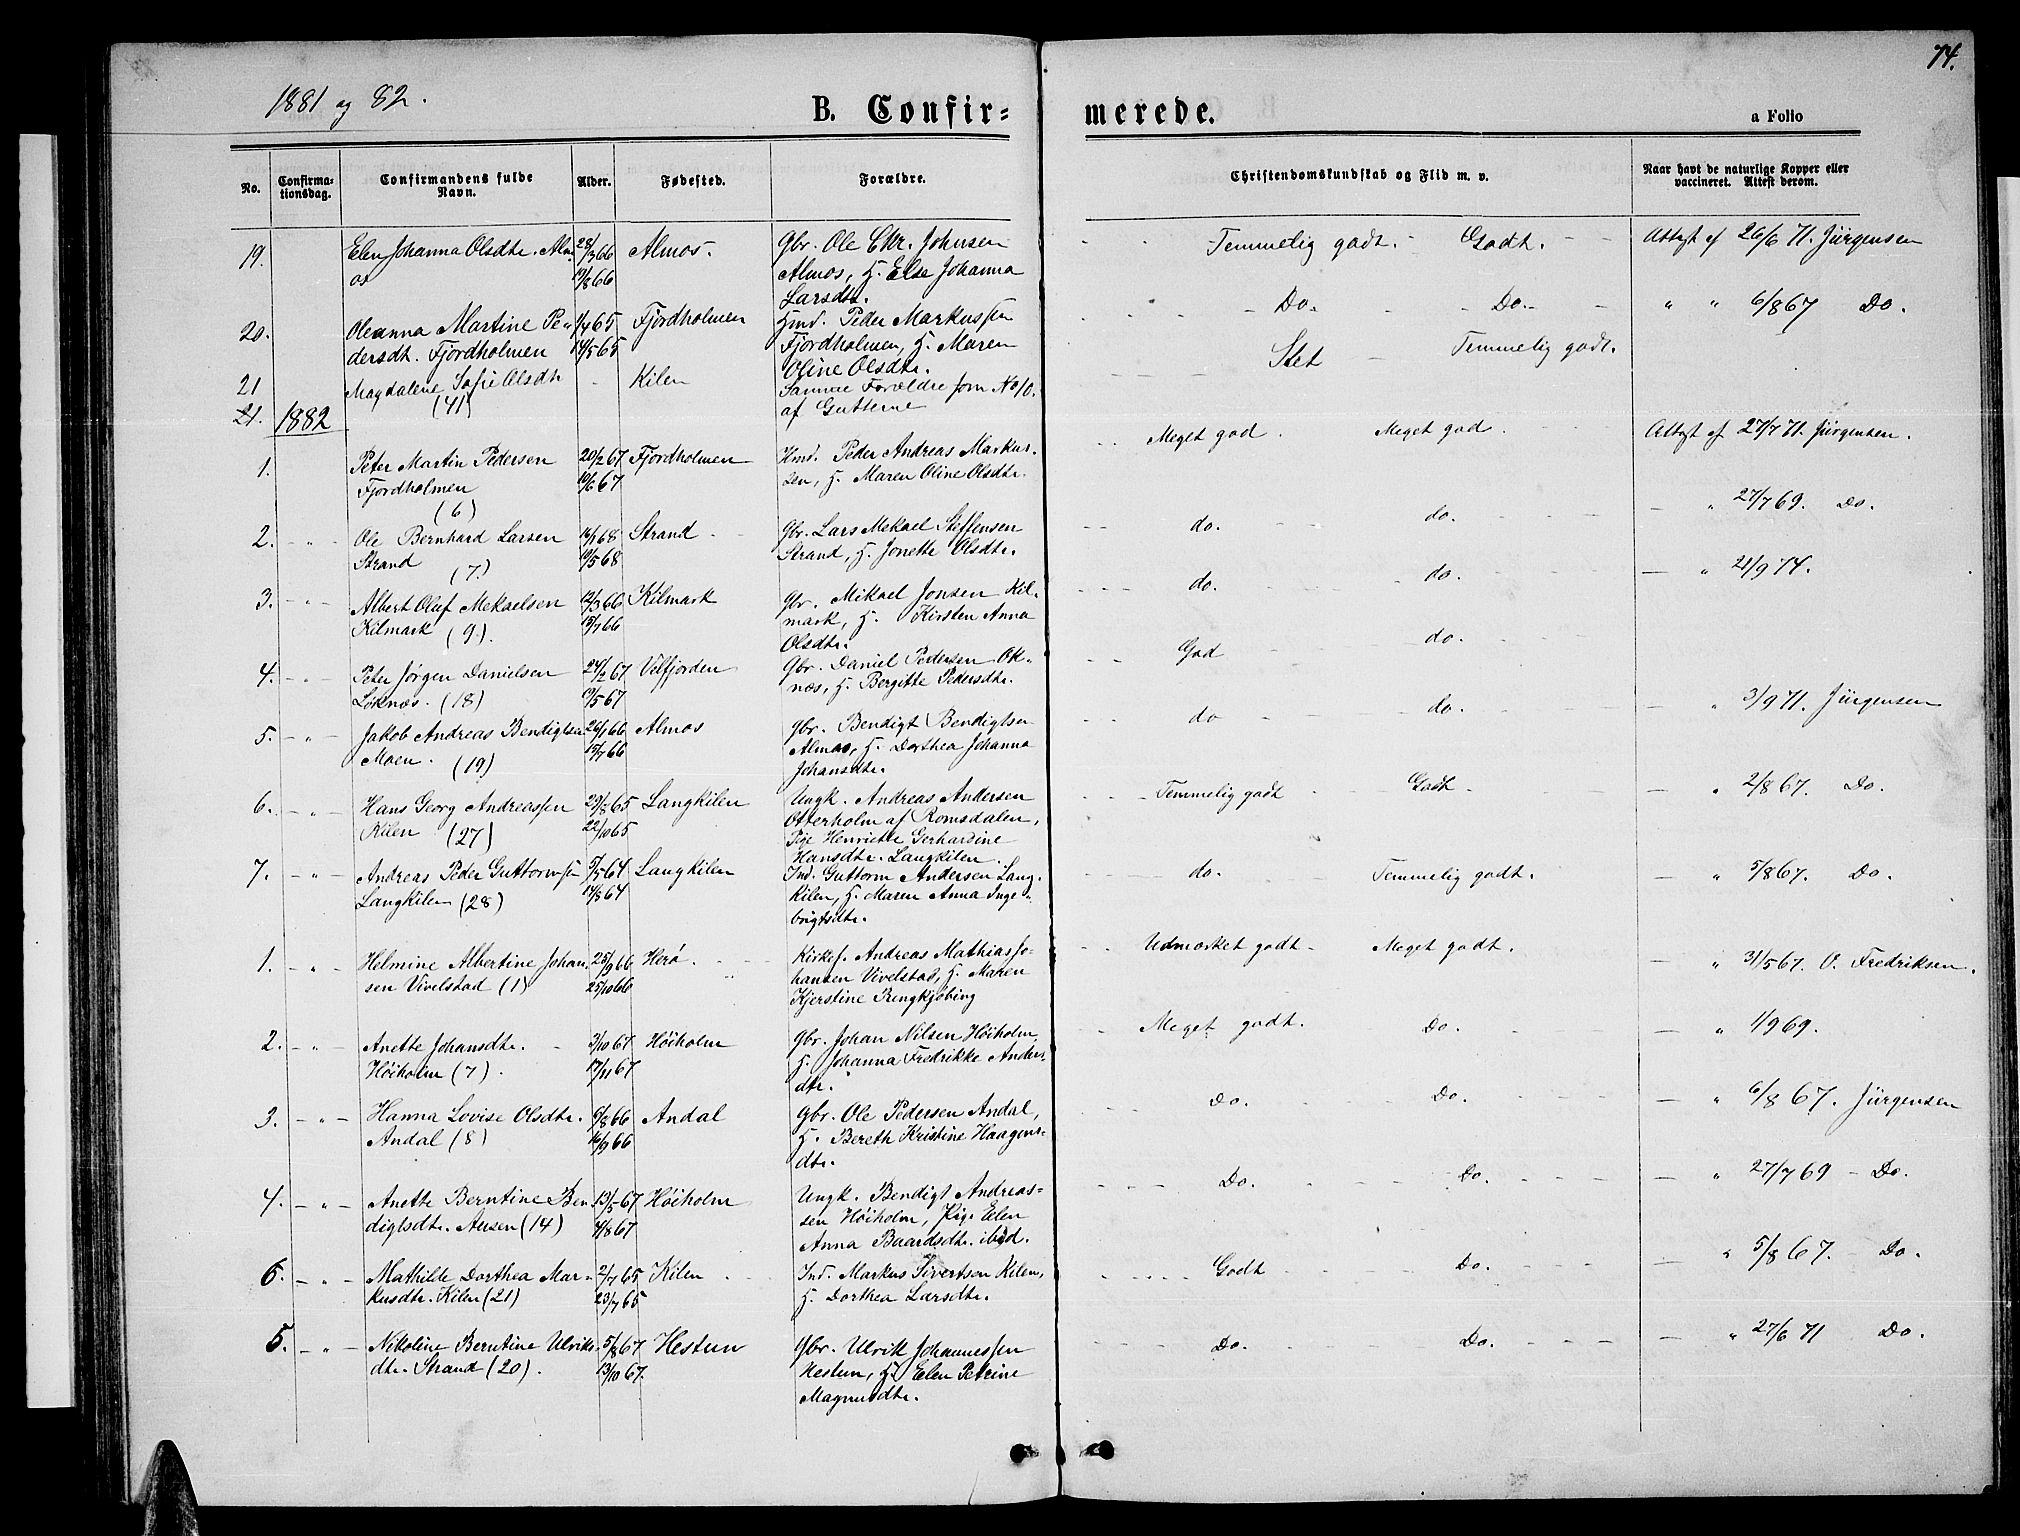 74.
1881 og 82.
B. Confir=
merede.
a Folio
No.
Confirma-
tionsdag.
Confirmandens fulde
Navn.
Alder.
Fødested.
Forældre.
Christendomskundskab og Flid m. v.
Naar havt de naturlige Kopper eller
vaccineret. Attest derom.
19. Elen Johanna Olsdtr. Alm- 28/3 66 Almos. Gbr. Ole Chr. Johnsen Temmelig godt. - Godt. Attest af 26/6 71. Jürgensen
os 19/8 66 Almos, H. Else Johanna
Larsdtr.
20. Oleanna Martine Pe- 1/4 65 Fjordholmen Hmd. Peder Markussen Do. Do. " " 6/8 67 Do.
dersdt. Fjordholmen 14/5 65 Fjordholmen, H. Maren
Oline Olsdtr.
21 Magdalene Sofie Olsdtr - Kilen Samme Forældre som No 10. Slet - Temmelig godt.
(41) af Gutterne
21. 1882
1. Peter Martin Pedersen 20/2 67 Fjordholmen Hmd. Peder Andreas Markus- Meget god. Meget god. Attest af 27/7 71. Jürgensen.
Fjordholmen 10/6 67 sen, H. Maren Oline Olsdtr.
(6)
2. - " - Ole Bernhard Larsen 16/1 68 Strand Gbr. Lars Mekael Steffensen do. do. " 27/7 69. Do.
Strand (7.) 10/5 68 Strand, H. Jonette Olsdtr.
3. - " - Albert Oluf Mekaelsen 12/3 66 Kilmark Gbr. Mikael Jonsen Kil- do. do. " 21/9 74.
Kilmark (9.) 15/7 66 mark, H. Kirsten Anna
Olsdtr.
4. - " - Peter Jørgen Danielsen 24/2 67 Velfjorden Gbr. Daniel Pedersen Ok- God do.
Løknæs. (18) 19/5 67 næs, H. Bergitte Pedersdtr.
5. - " - Jakob Andreas Bendigtsen 26/1 66 Almos Gbr. Bendigt Bendigtsen do do. " 3/9 71. Jürgensen
Moen. (19) 15/7 66 Almos, H. Dorthea Johanna
Johansdtr.
6. - " - Hans Georg Andreassen 29/8 65 Langkilen Ungk. Andreas Andersen Temmelig godt Godt " 2/8 67. Do.
Kilen (27) 22/10 65 Otterholm af Romsdalen,
Pige Henriette Gerhardine
Hansdtr. Langkilen.
7. - " - Andreas Peder Guttormsen 5/5 64 Langkilen Ind. Guttorm Andersen Lang- do. Temmelig godt. " 5/8 67. Do.
Langkilen (28) 14/8 64 kilen, H. Maren Anna Inge-
brigtsdtr.
1. - " - Helmine Albertine Johan- 25/9 66 Herö. Kirkes. Andreas Mathias Jo- Udmærket godt. Meget godt. " 31/5 67. O. Fredriksen.
sen Vivelstad (1) 25/10 66 hansen Vivelstad, H. Maren
Kjerstine Rengkjøbing
2. - " - Anette Johansdtr. 3/10 67 Höiholm Gbr. Johan Nilsen Höiholm, Meget godt. Do. " 1/9 69.
Höiholm (7). 17/11 67 H. Johanna Fredrikke Anders-
dtr.
3. - " - Hanna Lovise Olsdtr. 6/8 66 Andal Gbr. Ole Pedersen Andal, Do. Do. " 6/8 67. Jürgensen
Andal (8) 16/9 66 H. Bereth Kristine Haagens-
dtr.
4. - " - Anette Berntine Ben- 13/5 67 Höiholm Ungk. Bendigt Andreas- Do. Do. " 27/7 69 - Do.
digtsdtr. Ausen (14) 4/8 67 sen Höiholm, Pige Elen
Anna Baardsdtr. ibid.
6. - " - Mathilde Dorthea Mar- 2/7 65 Kilen Ind. Markus Sivertsen Kilen, Godt Do. " 5/8 67. - Do.
kusdtr. Kilen (21) 23/7 65 H. Dorthea Larsdtr.
5. - " - Nikoline Berntine Ulriks- 5/8 67 Hestun Gbr. Ulrik Johannessen Do. Do. " 27/6 71 Do.
dtr. Strand (20). 13/10 67. Hestun, H. Elen Petrine
Magnusdtr.